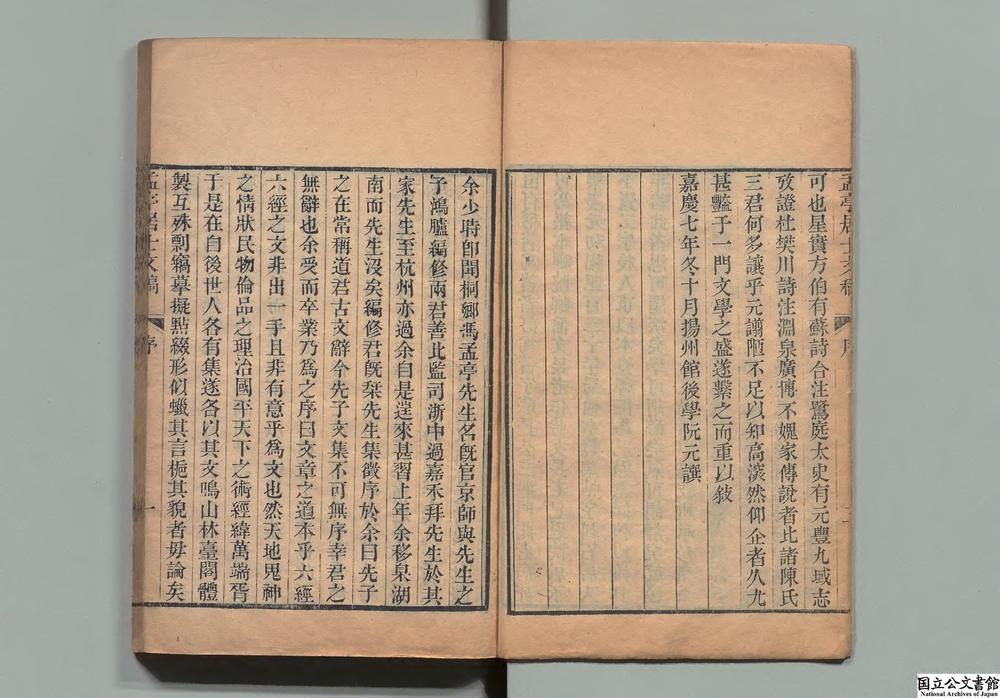 孟亭居士文稿 序 二
可也星實方伯有蘇詩合注鷺庭太史有元豐九域志
攷證杜樊川詩注淵泉廣博不媿家傳說者比諸陳氏
三君何多讓乎元譾陋不足以知高深然仰企者久尤
甚豔于一門文學之盛遂繫之而重以敍
嘉慶七年冬十月揚州館後學阮元譔
余少時卽聞桐鄉馮孟亭先生名旣官京師與先生之
子鴻臚編修兩君善比監司浙中過嘉禾拜先生於其
家先生至杭州亦過余自是遑來甚習上年余移臬湖
南而先生沒矣編修君旣栞先生集徵序於余曰先子
之在常稱道君古文辭今先子文集不可無序幸君之
無辭也余受而卒業乃爲之序曰文章之道本乎六經
六經之文非出一手且非有意乎爲文也然天地鬼神
之情狀民物倫品之理治國平天下之術經緯萬端胥
于是在自後世人各有集遂各以其文鳴山林臺閣體
製互殊剽竊摹擬㸃綴形似蠟其言梔其貌者毋論矣
孟亭居士文稿 序 一
国立公文書館
National Archives of Japan